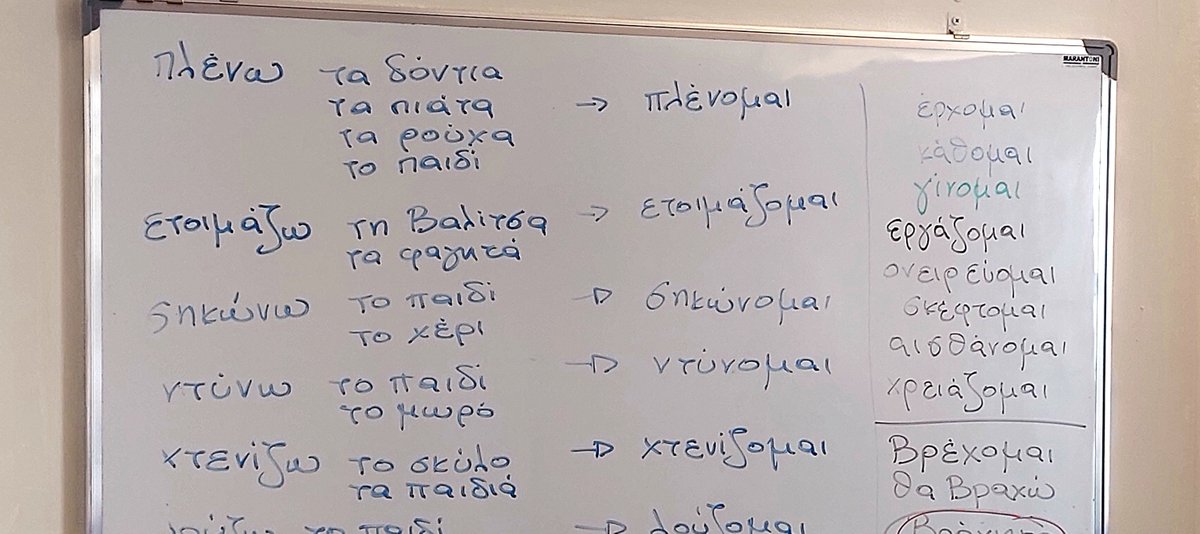 πλένω τα δόντια
τα πιάτα → πλένομαι
τα ρούχα
το παιδί
ετοιμάζω τη βαλίτσα → ετοιμάζομαι
τα φαγητά
σηκώνω το παιδί → σηκώνομαι
το χέρι
ντύνω το παιδί → ντύνομαι
το μωρό
χτενίζω το σκύλο → χτενίζομαι
τα παιδιά
το παιδί → λούζομαι
MARANTONI
έρχομαι
κάθομαι
γίνομαι
εργάζομαι
ονειρεύομαι
σκέφτομαι
αισθάνομαι
χρειάζομαι
Βρέχομαι
θα Βραχώ